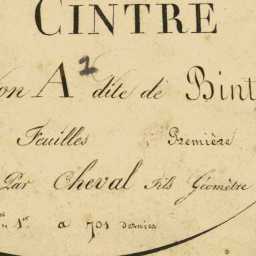 CINTRÉ
on A 2 dite de Bint
Feuilles Première
Par Cheval Fils Géomètre
1er a 701 dernier